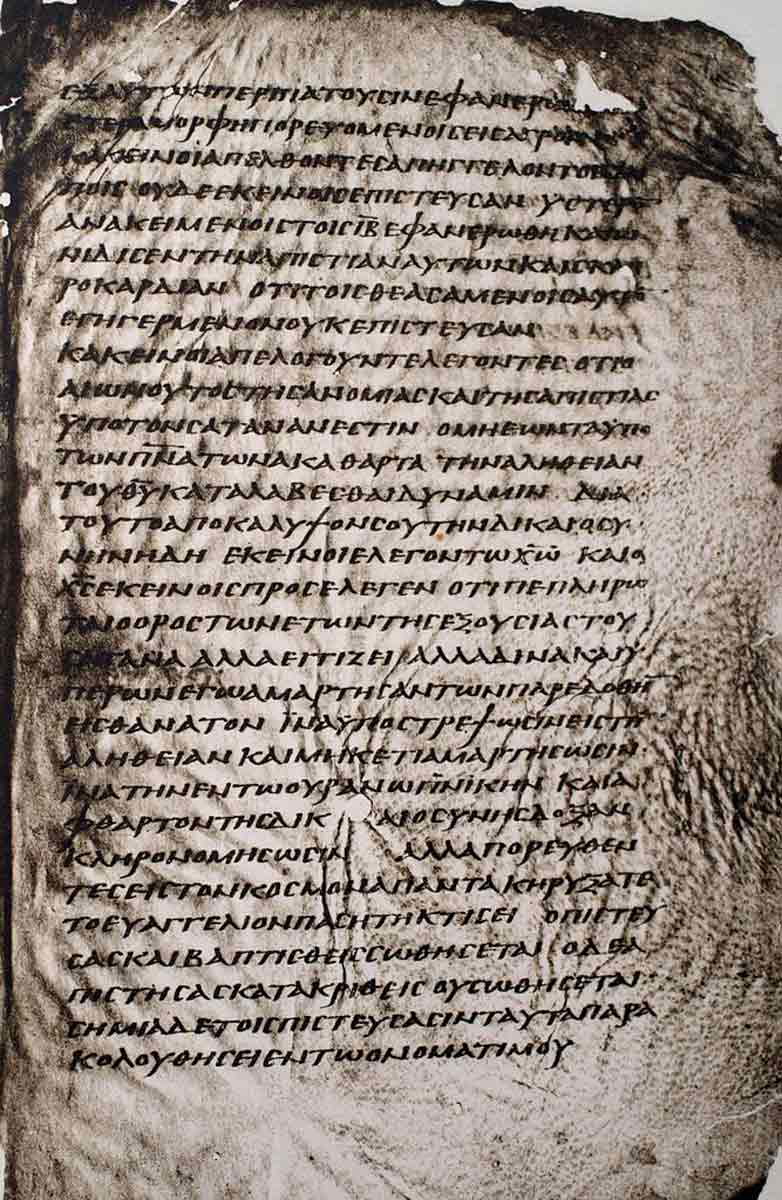 ΕΞΑΥΤΩΝΠΕΡΙΠΑΤΟΥCΙΝΕΦΑΝΕΡΩ
ΕΤΕΡΑΜΟΡΦΗΠΟΡΕΥΟΜΕΝΟΙCΕΙCΑΓΡΟΝ
ΚΑΚΕΙΝΟΙΑΠΕΛΘΟΝΤΕCΑΠΗΓΓΕΛΟΝΤΟΙC
ΠΟΙC ΟΥΔΕΕΚΕΙΝΟΙCΕΠΙCΤΕΥCΑΝ ΥCΤΕΡΟ
ΑΝΑΚΕΙΜΕΝΟΙCΤΟΙCΙ̅Β̅ΕΦΑΝΕΡΩΘΗΚΑΙΩ
ΝΙΔΙCΕΝΤΗΝΑΠΙCΤΙΑΝΑΥΤΩΝΚΑΙCΚΛΗ
ΡΟΚΑΡΔΙΑΝ ΟΤΙΤΟΙCΘΕΑCΑΜΕΝΟΙCΑΥΤΟ
ΕΓΗΓΕΡΜΕΝΟΝΟΥΚΕΠΙCΤΕΥCΑΝ
ΚΑΚΕΙΝΟΙΑΠΕΛΟΓΟΥΝΤΕΛΕΓΟΝΤΕC ΟΤΙΟ
ΑΙΩΝΟΥΤΟCΤΗCΑΝΟΜΙΑCΚΑΙΤΗCΑΠΙCΤΙΑC
ΥΠΟΤΟΝCΑΤΑΝΑΝΕCΤΙΝ ΟΜΗΕΩΝΤΑΫΠΟ
ΤΩΝΠ̅Ν̅Α̅ΤΩΝΑΚΑΘΑΡΤΑ ΤΗΝΑΛΗΘΕΙΑΝ
ΤΟΥΘ̅Υ̅ΚΑΤΑΛΑΒΕCΘΑΙΔΥΝΑΜΙΝ ΔΙΑ
ΤΟΥΤΟΑΠΟΚΑΛΥΨΟΝCΟΥΤΗΝΔΙΚΑΙΟCΥ
ΝΗΝΗΔΗ ΕΚΕΙΝΟΙΕΛΕΓΟΝΤΩΧ̅Ω̅ ΚΑΙΟ
Χ̅C̅ΕΚΕΙΝΟΙCΠΡΟCΕΛΕΓΕΝ ΟΤΙΠΕΠΛΗΡΩ
ΤΑΙΟΟΡΟCΤΩΝΕΤΩΝΤΗCΕΞΟΥCΙΑCΤΟΥ
CΑΤΑΝΑ ΑΛΛΑΕΓΓΙΖΕΙ ΑΛΛΑΔΙΝΑΚΑΙΫ
ΠΕΡΩΝΕΓΩΑΜΑΡΤΗCΑΝΤΩΝΠΑΡΕΔΟΘΗΝ
ΕΙCΘΑΝΑΤΟΝ ΪΝΑΫΠΟCΤΡΕΨΩCΙΝΕΙCΤΗΝ
ΑΛΗΘΕΙΑΝ ΚΑΙΜΗΚΕΤΙΑΜΑΡΤΗCΩCΙΝ
ΙΝΑΤΗΝΕΝΤΩΟΥΡΑΝΩΠ̅Ν̅ΙΚΗΝ ΚΑΙΑ
ΦΘΑΡΤΟΝΤΗCΔΙΚ ΑΙΟCΥΝΗCΔΟΞΑΝ
ΚΛΗΡΟΝΟΜΗCΩCΙΝ ΑΛΛΑΠΟΡΕΥΘΕΝ
ΤΕCΕΙCΤΟΝΚΟCΜΟΝΑΠΑΝΤΑ ΚΗΡΥΞΑΤΕ
ΤΟΕΥΑΓΓΕΛΙΟΝΠΑCΗΤΗΚΤΙCΕΙ ΟΠΙCΤΕΥ
CΑCΚΑΙΒΑΠΤΙCΘΕΙCCΩΘΗCΕΤΑΙ ΟΔΕΑ
ΠΙCΤΗCΑCΚΑΤΑΚΡΙΘΕΙC ΟΥCΩΘΗCΕΤΑΙ
CΗΜΙΑΔΕΤΟΙCΠΙCΤΕΥCΑCΙΝΤΑΥΤΑΠΑΡΑ
ΚΟΛΟΥΘΗCΕΙΕΝΤΩΟΝΟΜΑΤΙΜΟΥ